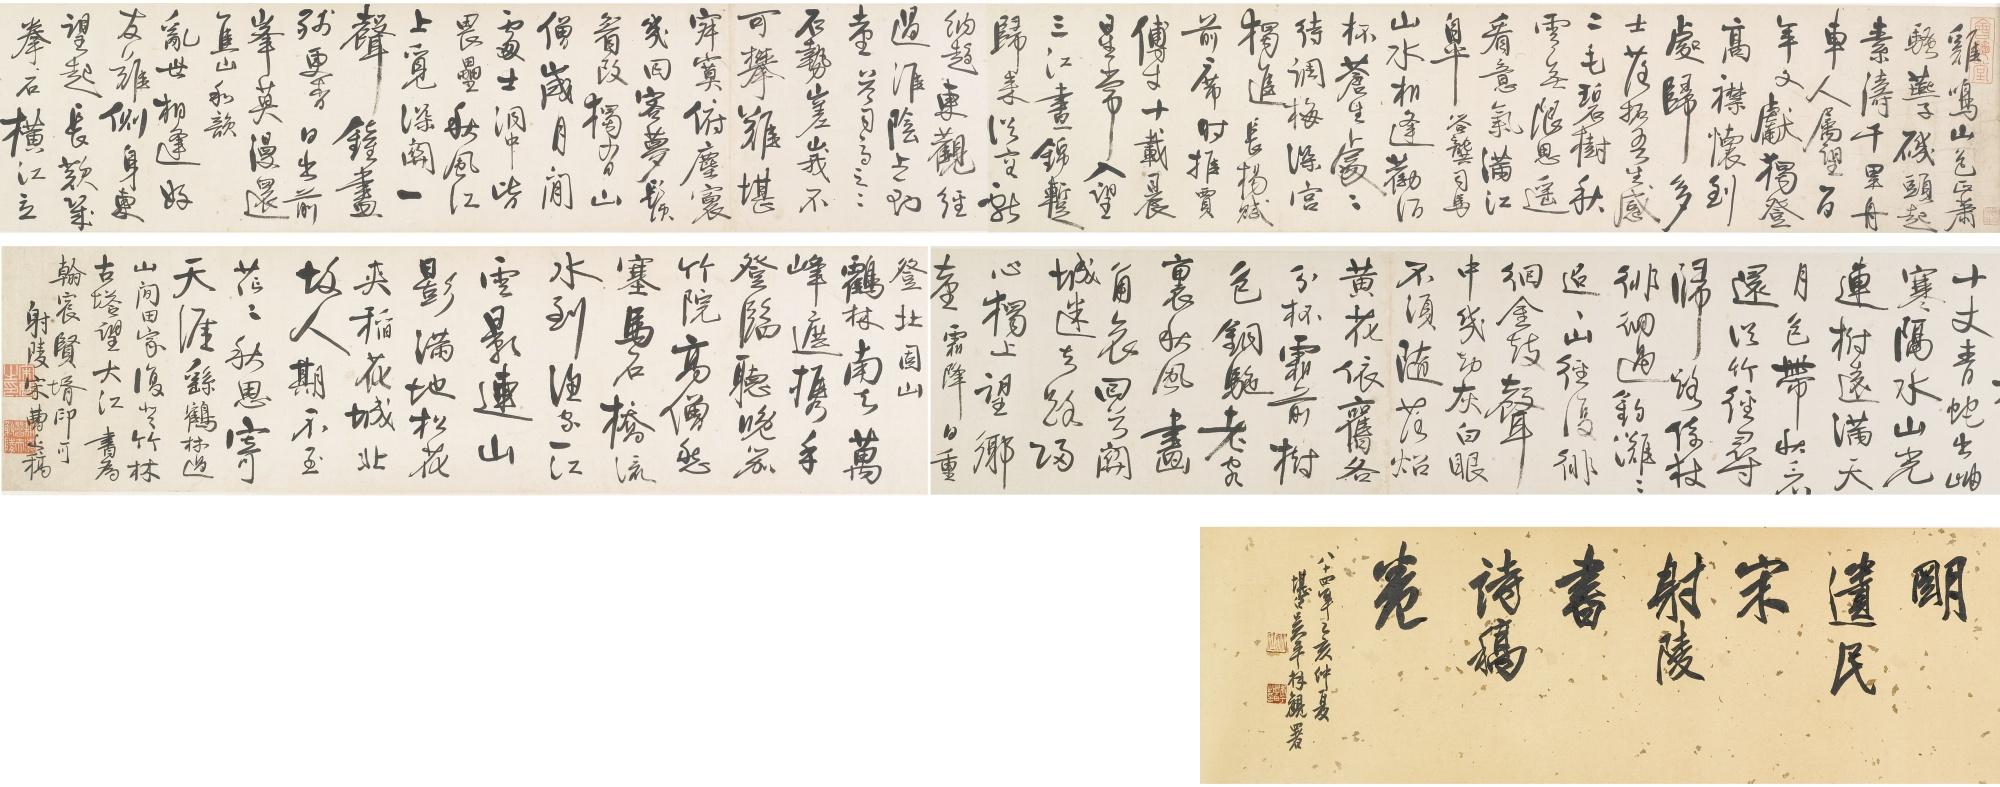 雞鳴山色正蕭
騷燕子磯頭起
素濤千里舟
車人屬望百
年文獻獨登
高襟懷到
處歸多
士落拓吾生感
二毛碧樹秋
雲無限思遥
看意氣滿江
皋 答龔司馬
山水相逢勸酒
杯蒼生
待調梅深宮
獨進長楊賦
前席時推賈
傅才十載晨
星常入望
三江晝錦暫
歸來從
東觀經
過淮陰
石勢崖嵬不
可攀難堪
寂寞俯塵寰
幾回客夢鬢
眉改獨有山
僧歲月閒
處士洞中皆
畏壘秋風江
上覓深關一
聲鐘盡
殘更 日出前
峯英漫還
焦山和韻
亂世相逢好
友難側身東
望起長歎
拳石橫江立
十丈青蛇出岫
寒隔水山光
連樹遠滿天
月色帶秋
還從竹徑尋
歸路倚杖
徘徊過釣灘〻
迢〻山徑復徘
徊金鼓聲
中幾劫灰白眼
不須隨落炤
黃花依舊各
分杯霜前樹
色銅駝老客
裏秋風畫
角哀回首關
城迷去路歸
心獨上望鄉
臺 霜降日重
登北固山
鶴林南去萬
峰遮攜手
登臨聽晚笳
竹院高僧愁
塞馬石橋流
水到漁家一江
雲影連山
影滿地松花
夾稻花城北
故人期不至
茫〻秋思寄
天涯 繇鶴林過
山間田家復於竹林
古塔望大江 書為
翰宸賢壻即可
射陵宋曹 稿
明
遺民
宋
射陵
書
詩稿
卷
八十四年乙亥仲夏
堪白吳平拜觀署